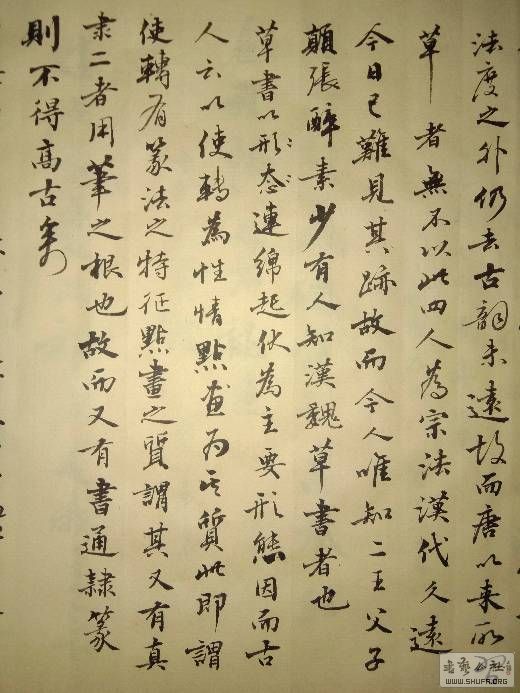 法度之外仍去古韵未遠故而唐以来所
草者無不以此四人為宗法漢代久遠
今日已難見其跡故而今人唯知二王父子
顛張醉素少有人知漢魏草書者也
草書以形态連綿起伏為主要形態因而古
人云以使轉為性情點画为其質此即謂
使轉有篆法之特征點畫之質謂其又有真
隶二者用筆之根也故而又有書通隸篆
則不得高古矣
書藝公社
WWW.SHUFA.ORG